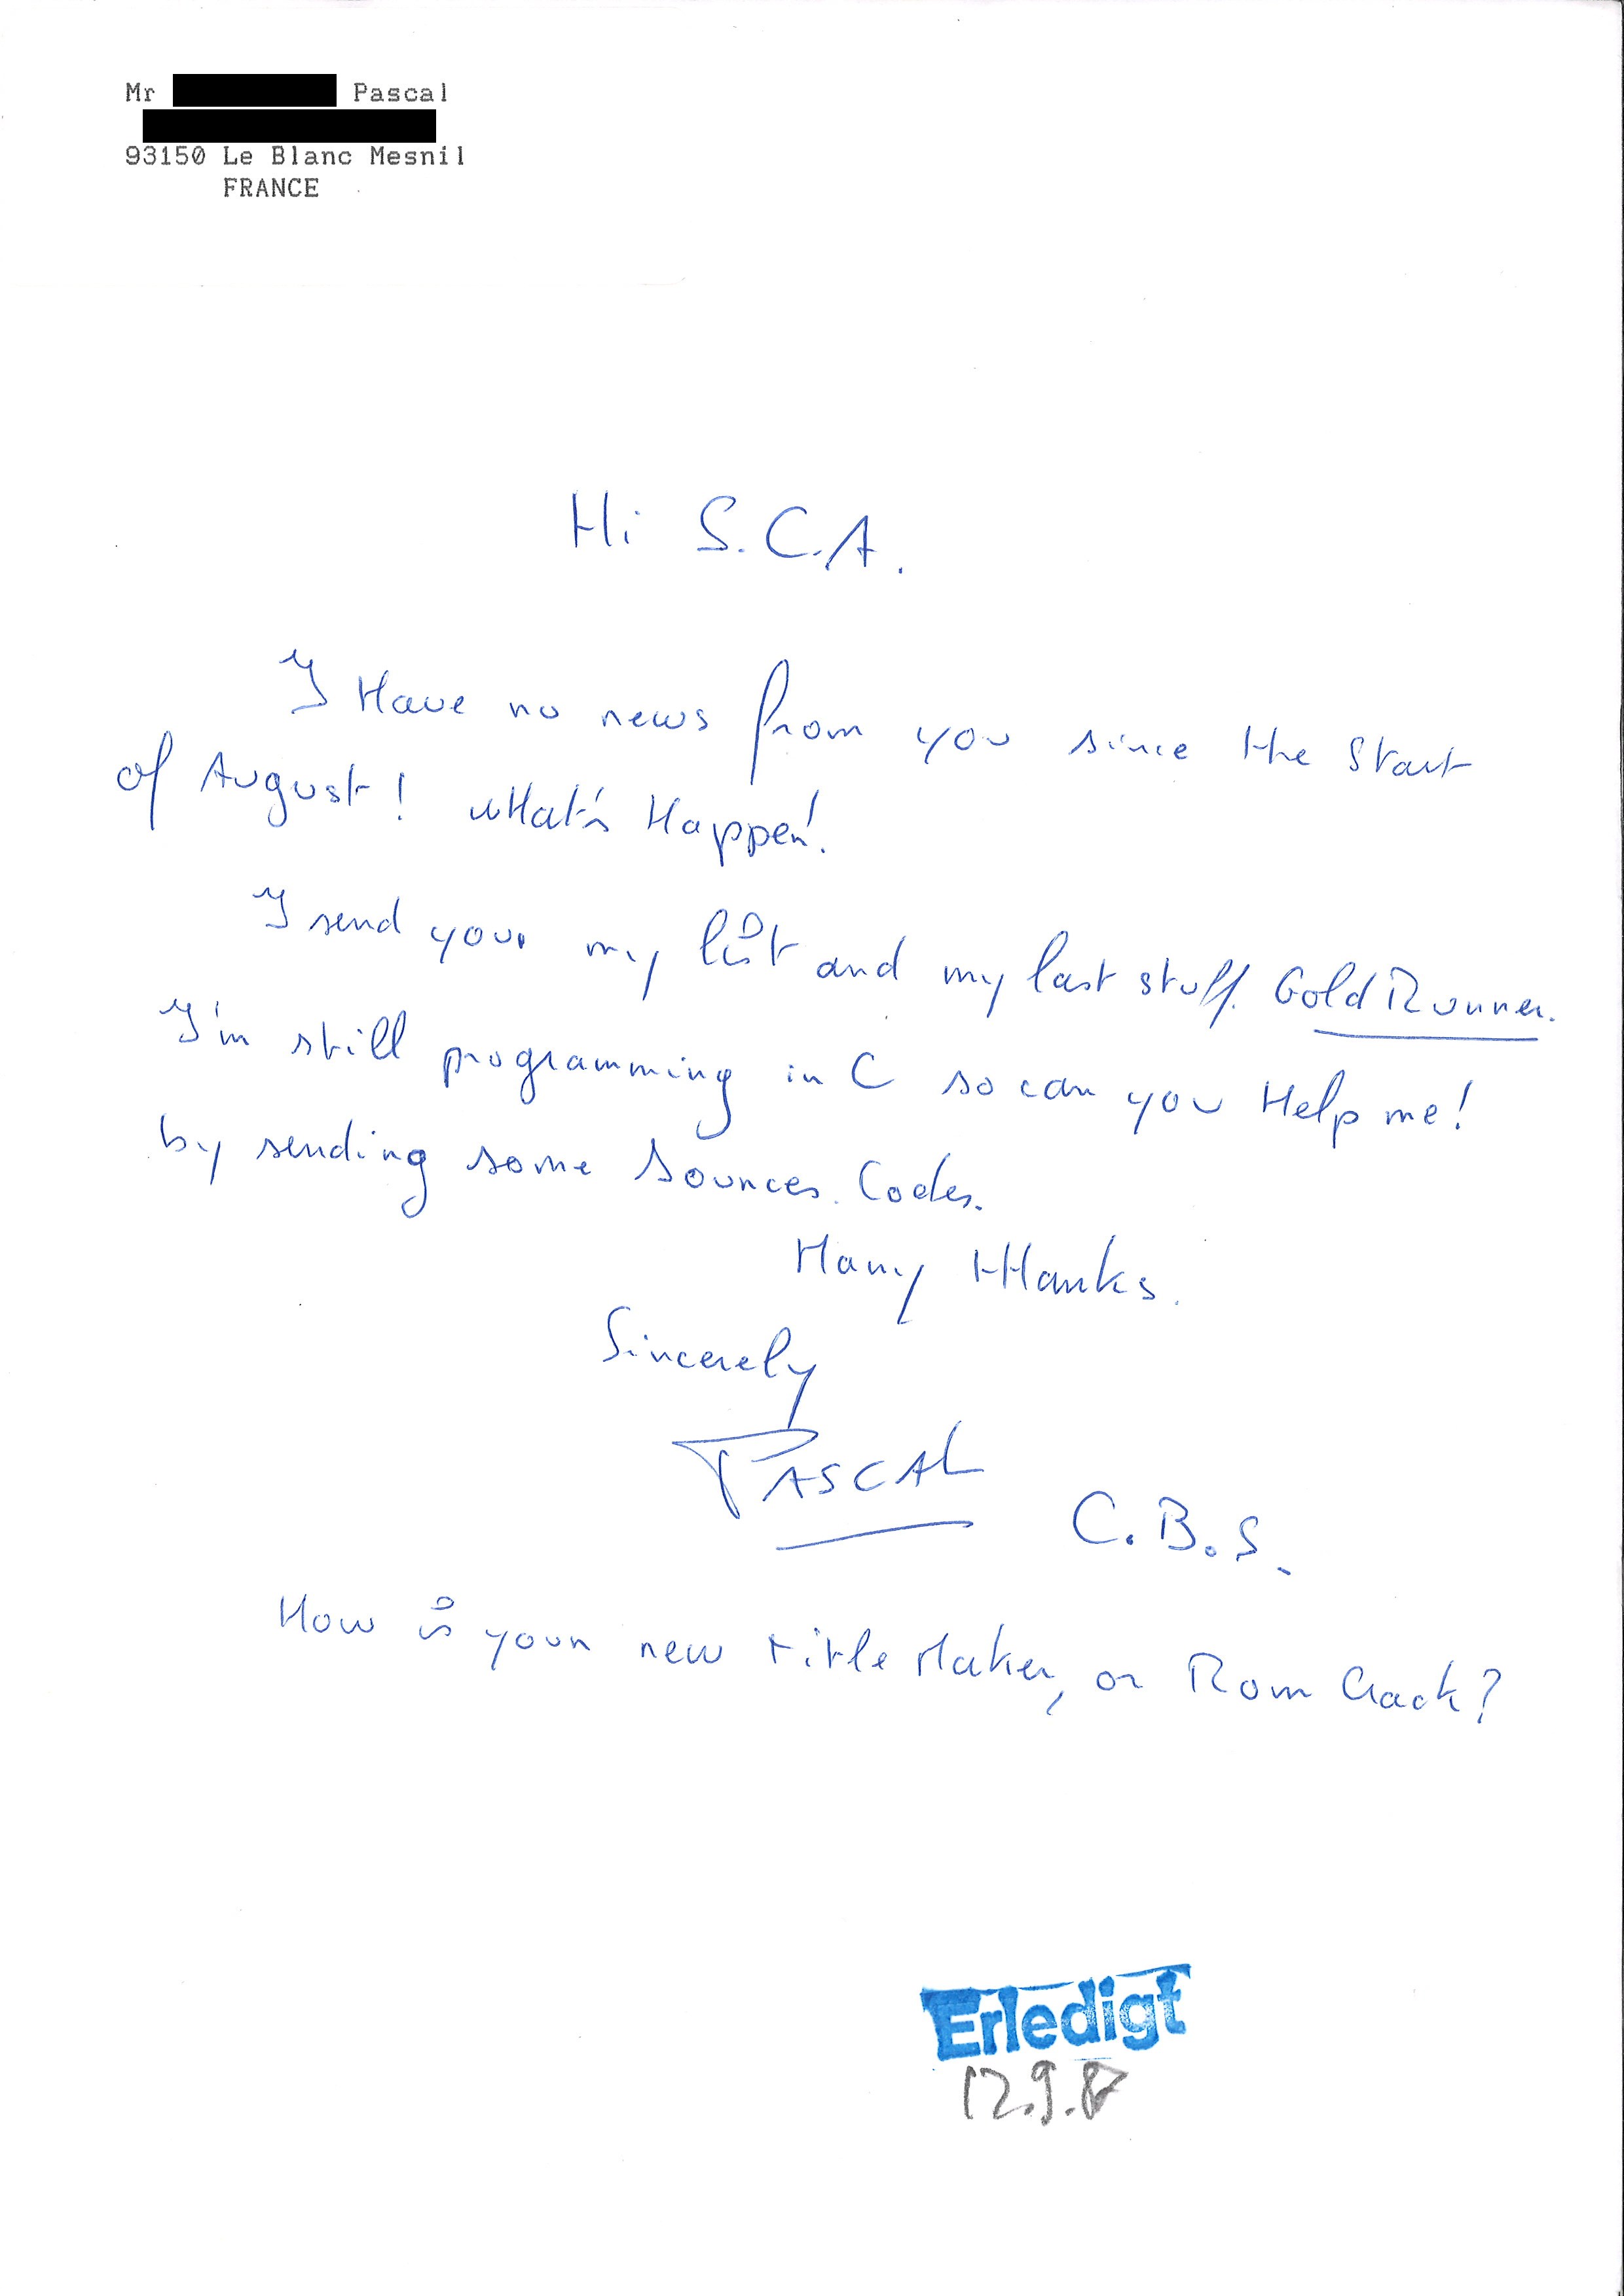 Mr Pascal
93150 Le Blanc Mesnil
FRANCE
Hi S.C.A.
I Have no news from you since the Start
of August! what's Happen!
I send your my list and my last stuff. Gold Runner.
I'm still programming in C so can you Help me!
by sending some sources. Codes.
Many tHanks.
Sincerely
PASCAL C.B.S.
How is your new title Maker, or Rom Crack?
Erledigt
12.9.87